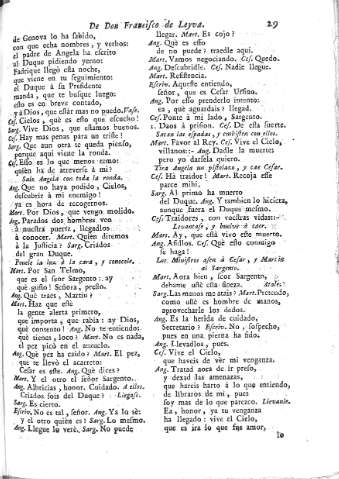 De Don Francisco de Leyva. 29
de Genova lo ha sabido,
con que echa nombres, y verbos:
el padre de Angela ha escrito
al Duque pidiendo yerno:
Fadrique llegó esta noche,
que viene en tu seguimiento:
el Duque à su Presidente
manda, que te busque luego:
esto es en breve contado,
y à Dios, que estàr mas no puedo. Vase.
Ces. Cielos, què es esto que escucho!
Sarg. Vive Dios, que estamos buenos.
Ces. Hay mas penas para un triste?
Sarg. Que aun otra te queda pienso,
porque aqui viene la ronda.
Ces. Esso es lo que menos temo:
quièn ha de atreverse à mi?
Sale Angela con toda la ronda.
Ang. Que no haya podido, Cielos,
descubrir à mi enemigo!
ya es hora de recogernos.
Mart. Por Dios, que vengo molido.
Ang. Parados dos hombres veo
à nuestra puerta, llegadlos
à conocer. Mart. Quièn diremos
à la Justicia? Sarg. Criados
del gran Duque.
Ponele la luz à la cara, y conocele.
Mart. Por San Telmo,
que es el señor Sargento: ay
què gusto! Señora, presto.
Ang. Què traes, Martin?
Mart. Haz que estè
la gente alerta primero,
que importa, que rabia: ay Dios,
què contento! Ang. No te entiendo:
què tienes, loco? Mart. No es nada,
el pez picò en el anzuelo.
Ang. Què pez ha caido? Mart. El pez,
que te llevò el azarero:
Cesar es este. Ang. Què dices?
Mart. Y el otro el señor Sargento.
Ang. Albricias, honor. Cuidado. A ellos.
Criados sois del Duque? Llegase.
Sarg. Es cierto.
Escriv. No es tal, señor. Ang. Ya lo sè:
y el otro quièn es? Sarg. Lo mesmo.
Ang. Llegue lo verè. Sarg. No puede
llegar. Mart. Es cojo?
Ang. Què es esto
de no puede? traedle aqui.
Mart. Vamos negociando. Ces. Quedo.
Ang. Descubridle. Ces. Nadie llegue.
Mart. Resistencia.
Escriv. Aqueste entiendo,
señor, que es Cesar Ursino.
Ang. Por esso prenderlo intento:
ea, què aguardais? llegad.
Ces. Ponte à mi lado, Sargento.
1. Daos à prision. Ces. De esta suerte.
Sacan las espadas, y embisten con ellos.
Mart. Favor al Rey. Ces. Vive el Cielo,
villanos:- Ang. Dadle la muerte:
pero yo darsela quiero.
Tira Angela un pistoletazo, y cae Cesar.
Ces. Hà traidor! Mart. Recoja esse
parce mihi.
Sarg. Al primo ha muerto
del Duque. Ang. Y tambien lo hiciera,
aunque fuera el Duque mesmo.
Ces. Traidores, con vuestras vidas:-
Levantase, y buelve à caer.
Mart. Ay, que està vivo este muerto.
Ang. Asidlos. Ces. Què esto consiguo
le haga!
Los Ministros asen à Cesar, y Martin
al Sargento.
Mart. Aora bien, seor Sargento,
debame usté essa fineza. Atale.
Sarg. Las manos me atais? Mart. Pretendo,
como usté es hombre de manos,
aprovecharle los dedos.
Ang. Es la herida de cuidado,
Secretario? Escriv. No, sospecho,
pues en una pierna ha sido.
Ang. Llevadlos, pues.
Ces. Vive el Cielo,
que haveis de vèr mi venganza.
Ang. Tratad aora de ir preso,
y dexad las amenazas,
que hareis harto à lo que entiendo,
de libraros de mi, pues
soy mas de lo que parezco. Llevanle.
Ea, honor, ya tu venganza
ha llegado: vive el Cielo,
que es ira lo que fue amor,
lo